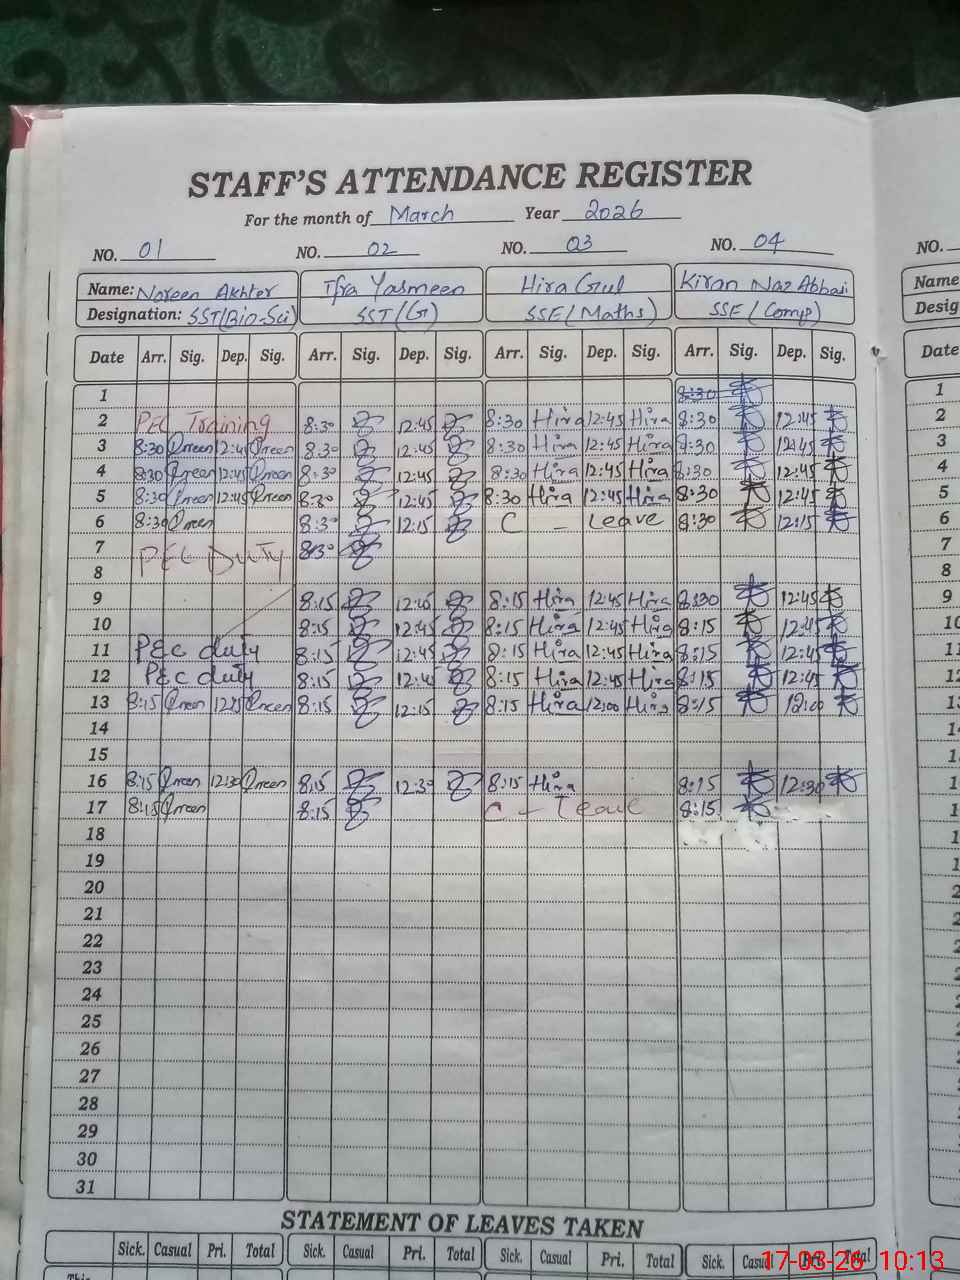 STAFF'S ATTENDANCE REGISTER
For the month of March Year 2026
NO. 01 NO. 02 NO. 03 NO. 04 NO.
Name: Noreen Akhter Ifra Yasmeen Hira Gul Kiran Naz Abbasi Name
Designation: SST(Bio-Sci) SST(G) SSE(Maths) SSE(Comp) Desig
Date Arr. Sig. Dep. Sig. Arr. Sig. Dep. Sig. Arr. Sig. Dep. Sig. Arr. Sig. Dep. Sig. Date
1 8:30 1
2 PEC Training 8:30 12:45 8:30 Hira 12:45 Hira 8:30 12:45 2
3 8:30 12:45 8:30 12:45 8:30 Hira 12:45 Hira 8:30 12:45 3
4 8:30 12:45 8:30 12:45 8:30 Hira 12:45 Hira 8:30 12:45 4
5 8:30 12:45 8:30 12:45 8:30 Hira 12:45 Hira 8:30 12:45 5
6 8:30 8:30 12:15 C - Leave 8:30 12:15 6
7 PEC DUTY 8:30 7
8 8
9 8:15 12:45 8:15 Hira 12:45 Hira 8:30 12:45 9
10 8:15 12:45 8:15 Hira 12:45 Hira 8:15 12:45 10
11 PEC duty 8:15 12:45 8:15 Hira 12:45 Hira 8:15 12:45 11
12 PEC duty 8:15 12:45 8:15 Hira 12:45 Hira 8:15 12:45 12
13 8:15 8:15 12:15 8:15 Hira 12:00 Hira 8:15 13
14
15
16 8:15 12:30 8:15 12:30 8:15 Hira 8:15 12:30
17 8:15 8:15 C - Leave 8:15
18
19
20
21
22
23
24
25
26
27
28
29
30
31
STATEMENT OF LEAVES TAKEN
Sick. Casual Pri. Total Sick. Casual Pri. Total Sick. Casual Pri. Total Sick. Casual Pri. Total
This
17-03-26 10:13